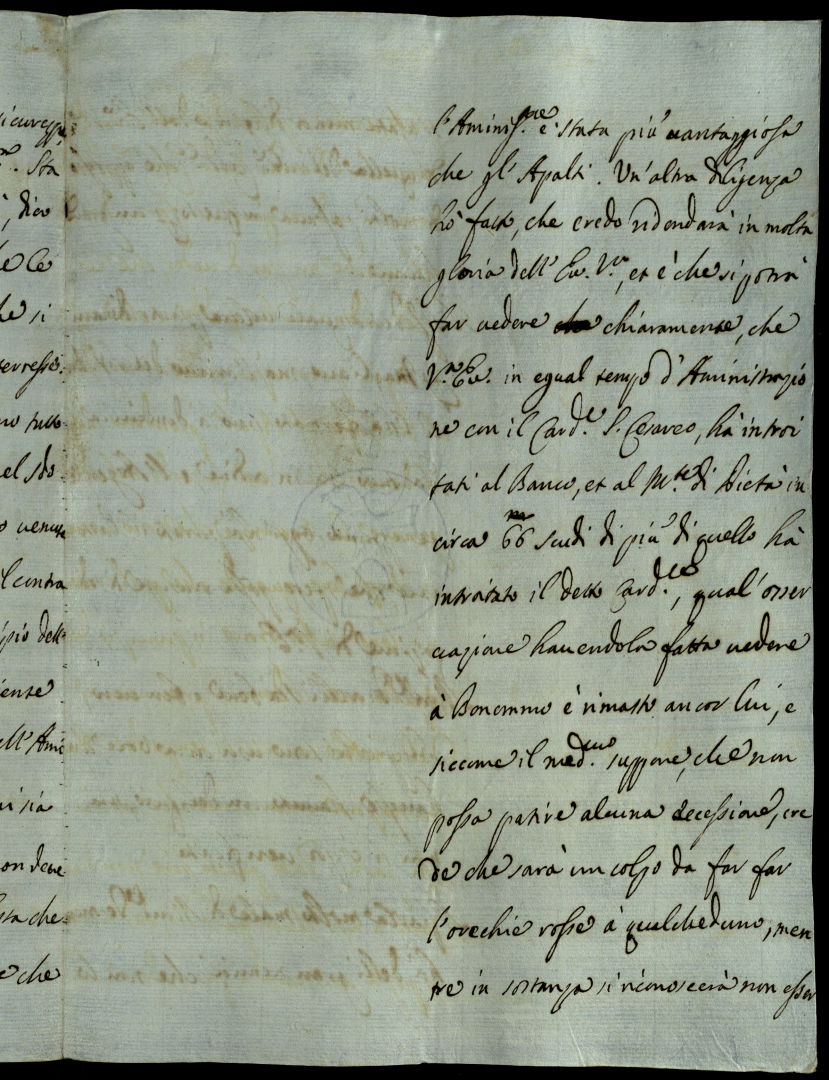 sicurezze
Sta
, dico
he Ce
he si
teresse
no tutto
el sdo
o venute
il contra
ipio dell'
iente
ell'Ami
ni sia
on deve
sta che
e che
l'Aminis.ne è stata più vantaggiosa
che gl'Apalti. Un'altra diligenza
hò fatto, che credo ridondarà in molta
gloria dell'Em. V.ra, et è che si potrà
far vedere chiaramente, che
V.ra Em. in egual tempo d'Aministrazio
ne con il Card.le S. Cesareo, hà introi
tati al Banco, et al M.te di Pietà in
circa 66 scudi di più di quello hà
introitato il detto Card.le, qual'osser
vazione havendola fatta vedere
à Bonommo è rimasto ancor lui, e
siccome il med.mo suppone, che non
possa patire alcuna eccessione, cre
de che sarà un colpo da far far
l'orechie rosse à qualcheduno, men
tre in sostanza si riconoscerà non esser